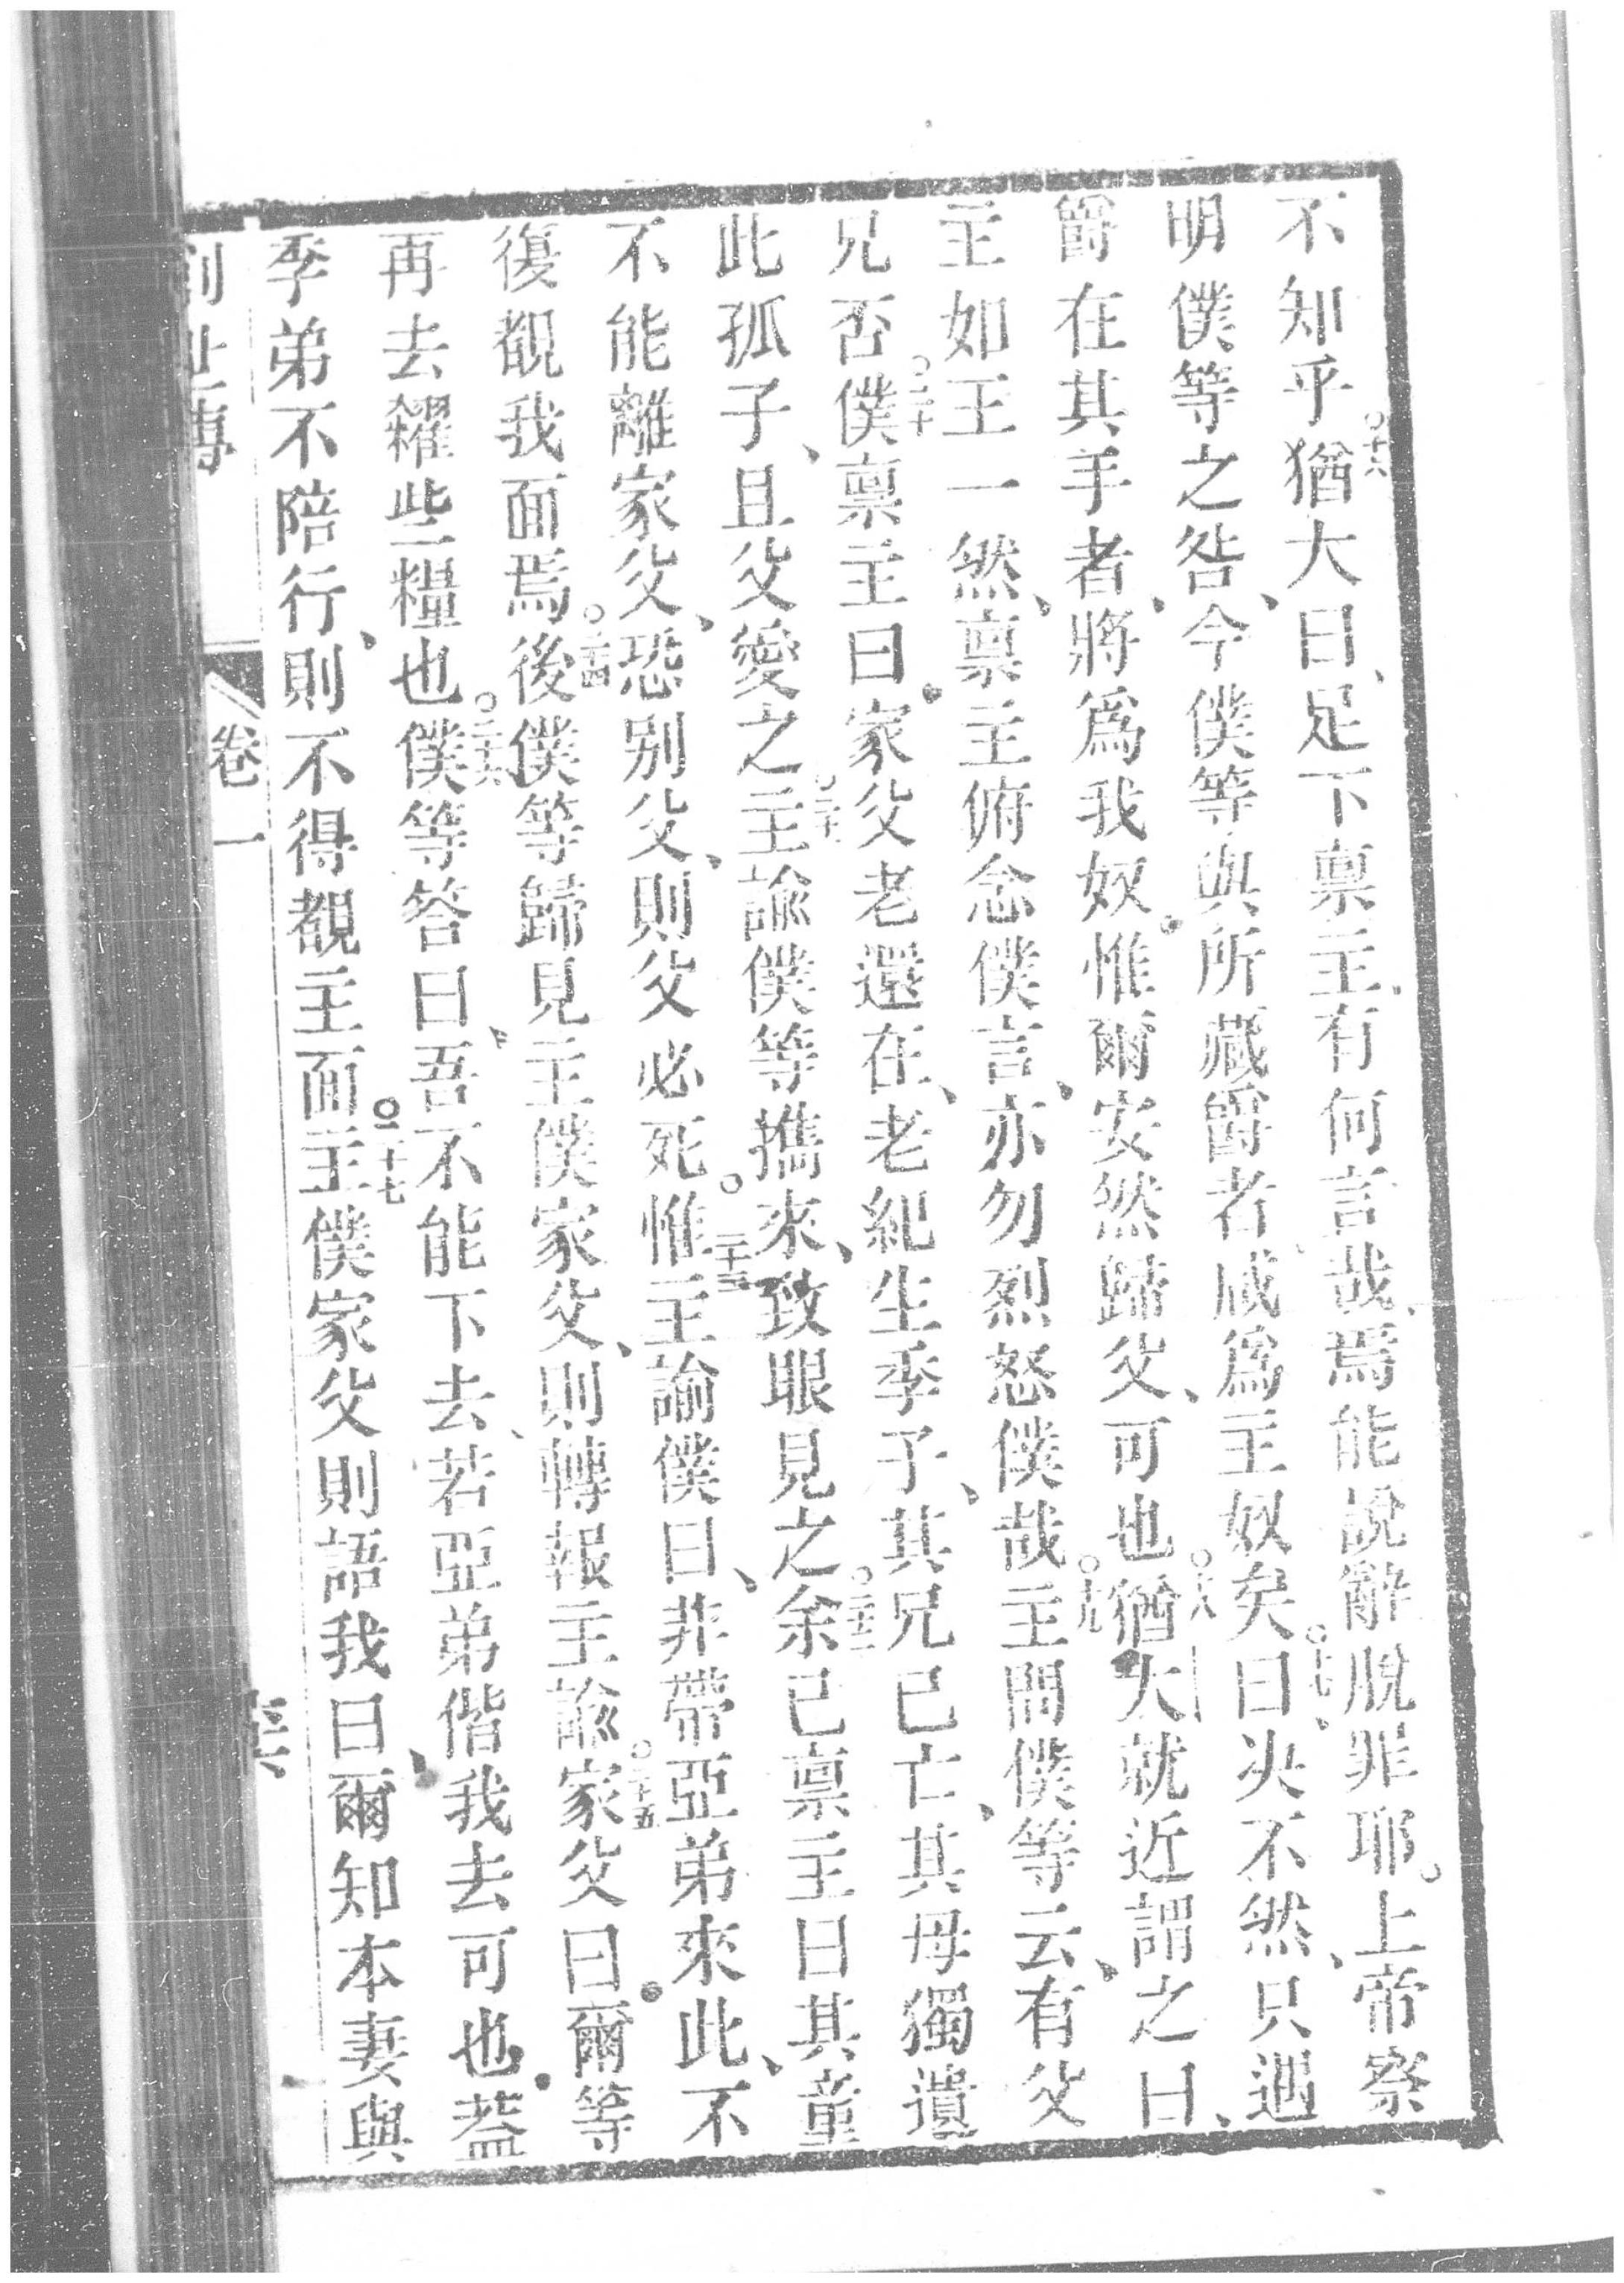 不知乎○十六猶大曰、足下稟主、有何言哉、焉能說辭脫罪耶。上帝察
明僕等之咎、今僕等與所藏爵者咸爲主奴矣○十七曰、决不然、只遇
爵在其手者、將爲我奴。惟爾安然歸父、可也○十八猶大就近謂之曰、
主如王一然、稟主俯念僕言、亦勿烈怒僕哉○十九主問僕等云、有父
兄否○二十僕稟主曰。家父老還在、老紀生季子、其兄已亡、其母獨遺
此孤子、且父愛之○二十一主諭僕等攜來、致眼見之○二十二余已稟主曰其童
不能離家父、恐别父、則父必死。○二十三惟主諭僕曰、非帶亞弟來此、不
復覩我面焉○二十四後僕等歸見主僕家父、則轉報主諭○二十五家父曰。爾等
再去糴些糧也○二十六僕等答曰、吾不能下去、若亞弟偕我去可也。蓋
季弟不陪行、則不得覩主面○二十七主僕家父則語我曰、爾知本妻與
創世傳
卷一